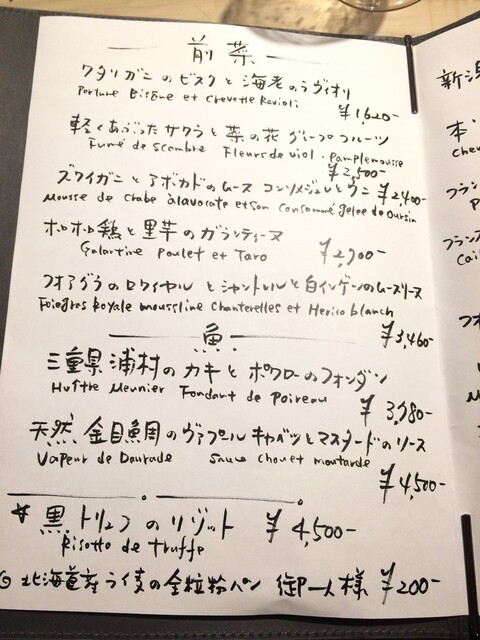 前菜
ワタリガニのビスクと海老のラヴィオリ
Porture Bisque et Crevette Ravioli
¥1,620-
軽くあぶったサワラと菜の花 グレープフルーツ
Fumé de Scombre Fleurs de viol. Pamplemousse
¥2,500-
ズワイガニとアボカドのムース コンソメジュレとウニ ¥2,400-
Mousse de Chabe alavocate et son Consommé gelee de Oursin
ホロホロ鶏と里芋のガランティーヌ
Galartine Poulet et Taro ¥2,700-
フォアグラのロワイヤルとシャントレルと白インゲンのムースリーヌ
Foiegras Royale moussline Chanterelles et Herico blanch
¥3,460-
魚
三重県浦村のカキとポワローのフォンダン
Huître Meunier Fondant de Poireau
¥3,980-
天然金目鯛のヴァプール キャベツとマスタードのソース
Vapeur de Daurade Sauce Chou et moutarde
¥4,500-
黒トリュフのリゾット ¥4,500-
Risotto de truffe
北海道産ライ麦の全粒粉パン 御一人様 ¥200-
新潟
本
フラン
フランス
フォ